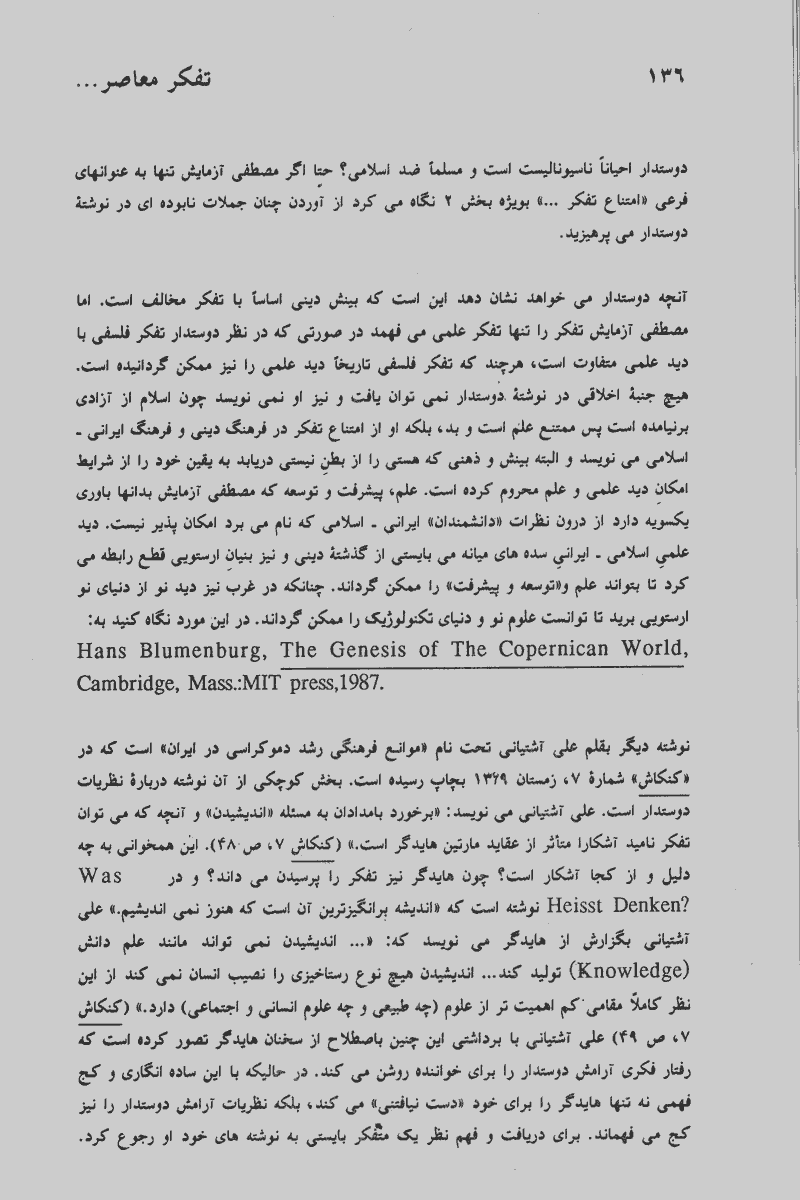 ۱۳۶
تفکر معاصر...
دوستدار احیاناً ناسیونالیست است و مسلماً ضد اسلامی؟ حتا اگر مصطفی آزمایش تنها به عنوانهای
فرعی «امتناع تفکر ...» بویژه بخش ۲ نگاه می کرد از آوردن چنان جملات نابوده ای در نوشتهٔ
دوستدار می پرهیزید.
آنچه دوستدار می خواهد نشان دهد این است که بینش دینی اساساً با تفکر مخالف است. اما
مصطفی آزمایش تفکر را تنها تفکر علمی می فهمد در صورتی که در نظر دوستدار تفکر فلسفی با
دید علمی متفاوت است، هرچند که تفکر فلسفی تاریخاً دید علمی را نیز ممکن گردانیده است.
هیچ جنبهٔ اخلاقی در نوشتهٔ دوستدار نمی توان یافت و نیز او نمی نویسد چون اسلام از آزادی
برنیامده است پس ممتنع علم است و بد، بلکه او از امتناع تفکر در فرهنگ دینی و فرهنگ ایرانی ـ
اسلامی می نویسد و البته بینش و ذهنی که هستی را از بطنِ نیستی دریابد به یقین خود را از شرایط
امکانِ دید علمی و علم محروم کرده است. علم، پیشرفت و توسعه که مصطفی آزمایش بدانها باوری
یکسویه دارد از درون نظرات «دانشمندان» ایرانی ـ اسلامی که نام می برد امکان پذیر نیست. دید
علمیِ اسلامی ـ ایرانیِ سده های میانه می بایستی از گذشتهٔ دینی و نیز بنیانِ ارستویی قطع رابطه می
کرد تا بتواند علم و«توسعه و پیشرفت» را ممکن گرداند. چنانکه در غرب نیز دید نو از دنیای نو
ارستویی برید تا توانست علوم نو و دنیای تکنولوژیک را ممکن گرداند. در این مورد نگاه کنید به:
Hans Blumenburg, The Genesis of The Copernican World,
Cambridge, Mass.:MIT press,1987.
نوشته دیگر بقلم علی آشتیانی تحت نام «موانع فرهنگی رشد دموکراسی در ایران» است که در
«کنکاش» شمارهٔ ۷، زمستان ۱۳۶۹ بچاپ رسیده است. بخش کوچکی از آن نوشته دربارهٔ نظریات
دوستدار است. علی آشتیانی می نویسد: «برخورد بامدادان به مسئله «اندیشیدن» و آنچه که می توان
تفکر نامید آشکارا متأثر از عقاید مارتین هایدگر است.» (کنکاش ۷، ص ۴۸). این همخوانی به چه
دلیل و از کجا آشکار است؟ چون هایدگر نیز تفکر را پرسیدن می داند؟ و در Was
Heisst Denken? نوشته است که «اندیشه برانگیزترین آن است که هنوز نمی اندیشیم.» علی
آشتیانی بگزارش از هایدگر می نویسد که: «... اندیشیدن نمی تواند مانند علم دانش
(Knowledge) تولید کند... اندیشیدن هیچ نوع رستاخیزی را نصیب انسان نمی کند از این
نظر کاملاً مقامی کم اهمیت تر از علوم (چه طبیعی و چه علوم انسانی و اجتماعی) دارد.» (کنکاش
۷، ص ۴۹) علی آشتیانی با برداشتی این چنین باصطلاح از سخنان هایدگر تصور کرده است که
رفتار فکری آرامش دوستدار را برای خواننده روشن می کند. در حالیکه با این ساده انگاری و کج
فهمی نه تنها هایدگر را برای خود «دست نیافتنی» می کند، بلکه نظریات آرامش دوستدار را نیز
کج می فهماند. برای دریافت و فهم نظر یک متفکر بایستی به نوشته های خود او رجوع کرد.